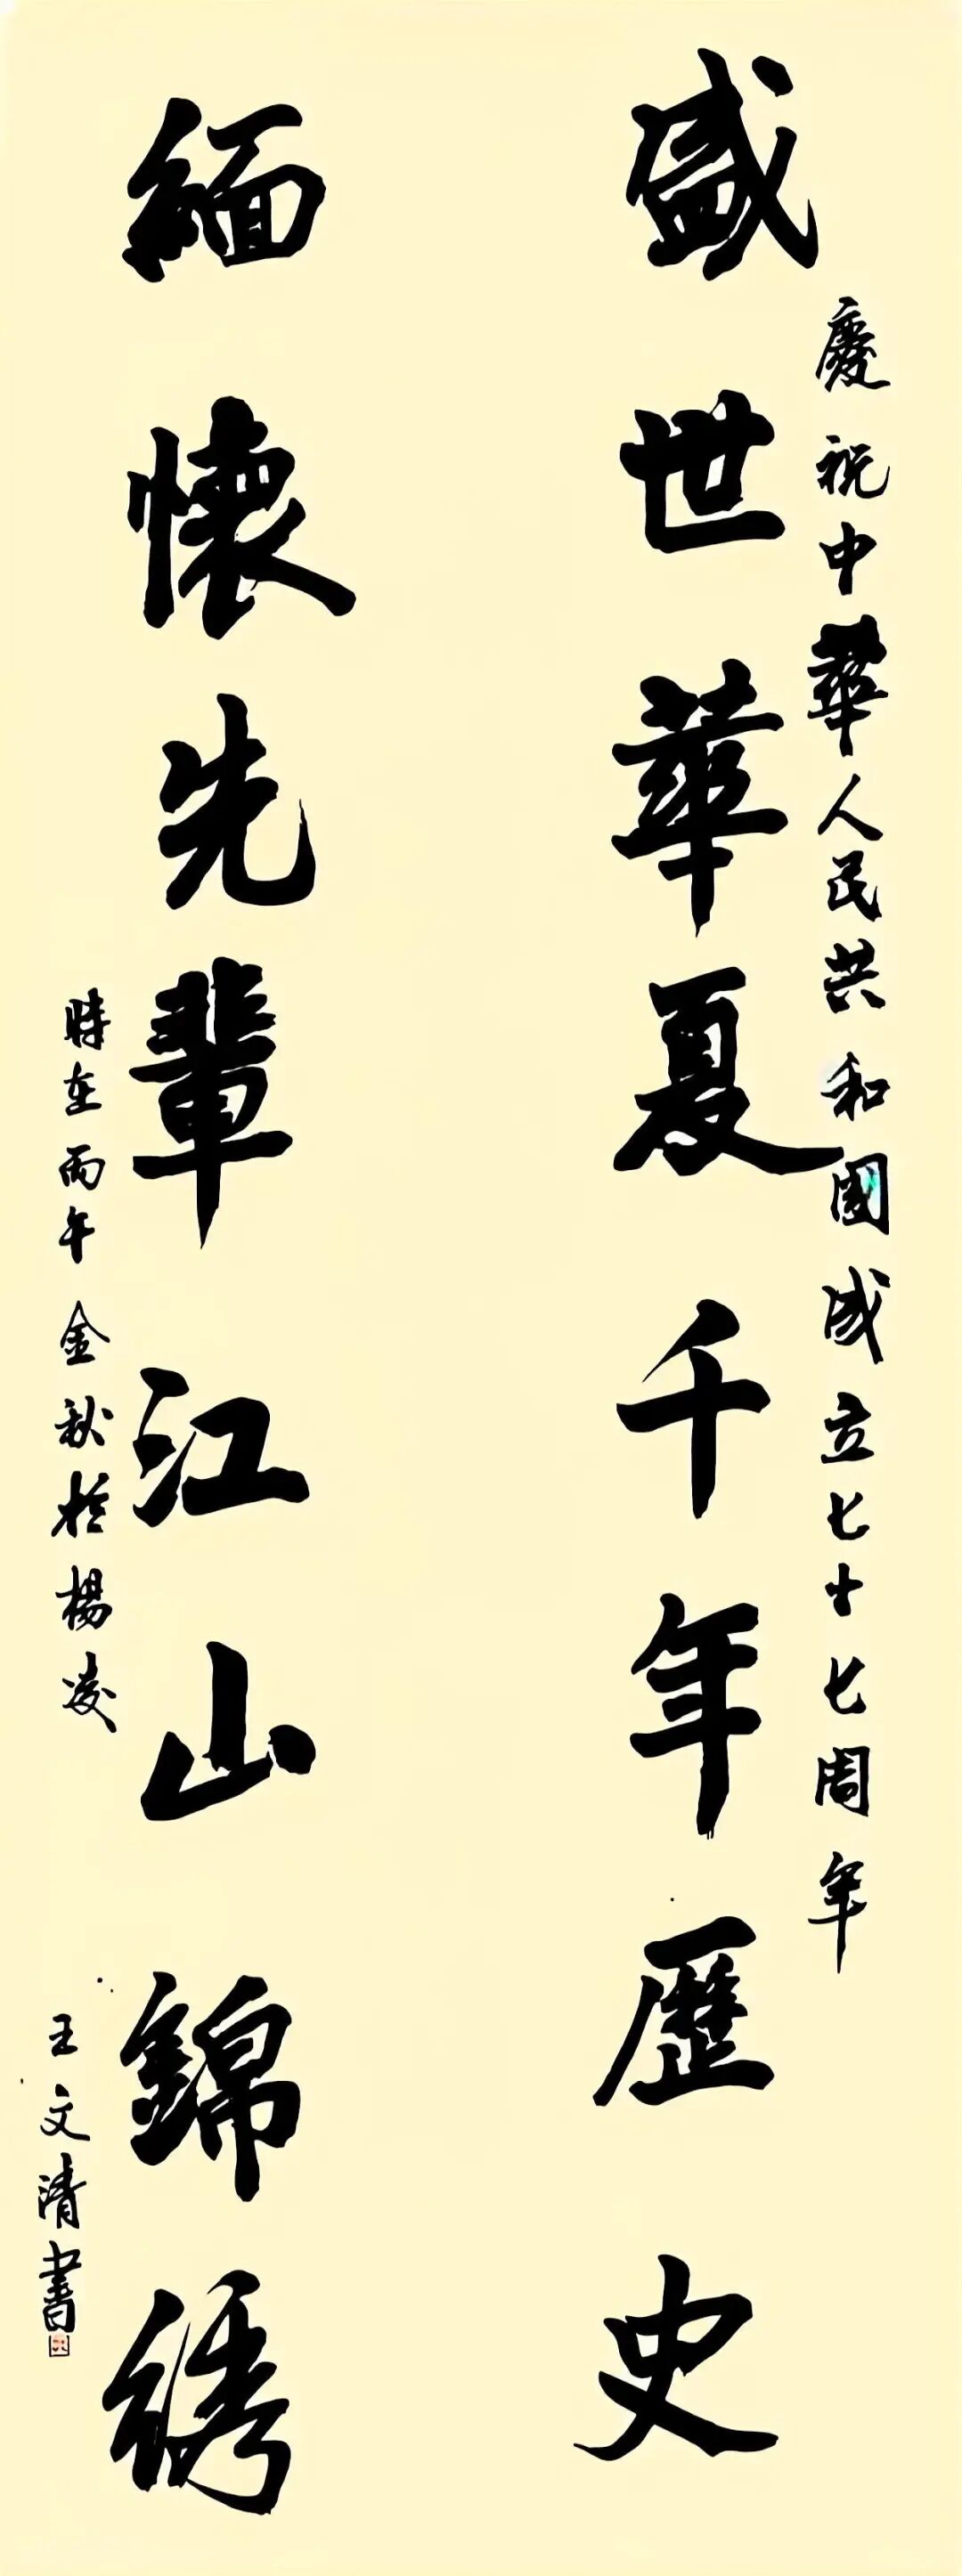 慶祝中華人民共和國成立七十七周年
盛世華夏千年歷史
緬懷先輩江山錦绣
時在丙午金秋於楊凌
王文清書